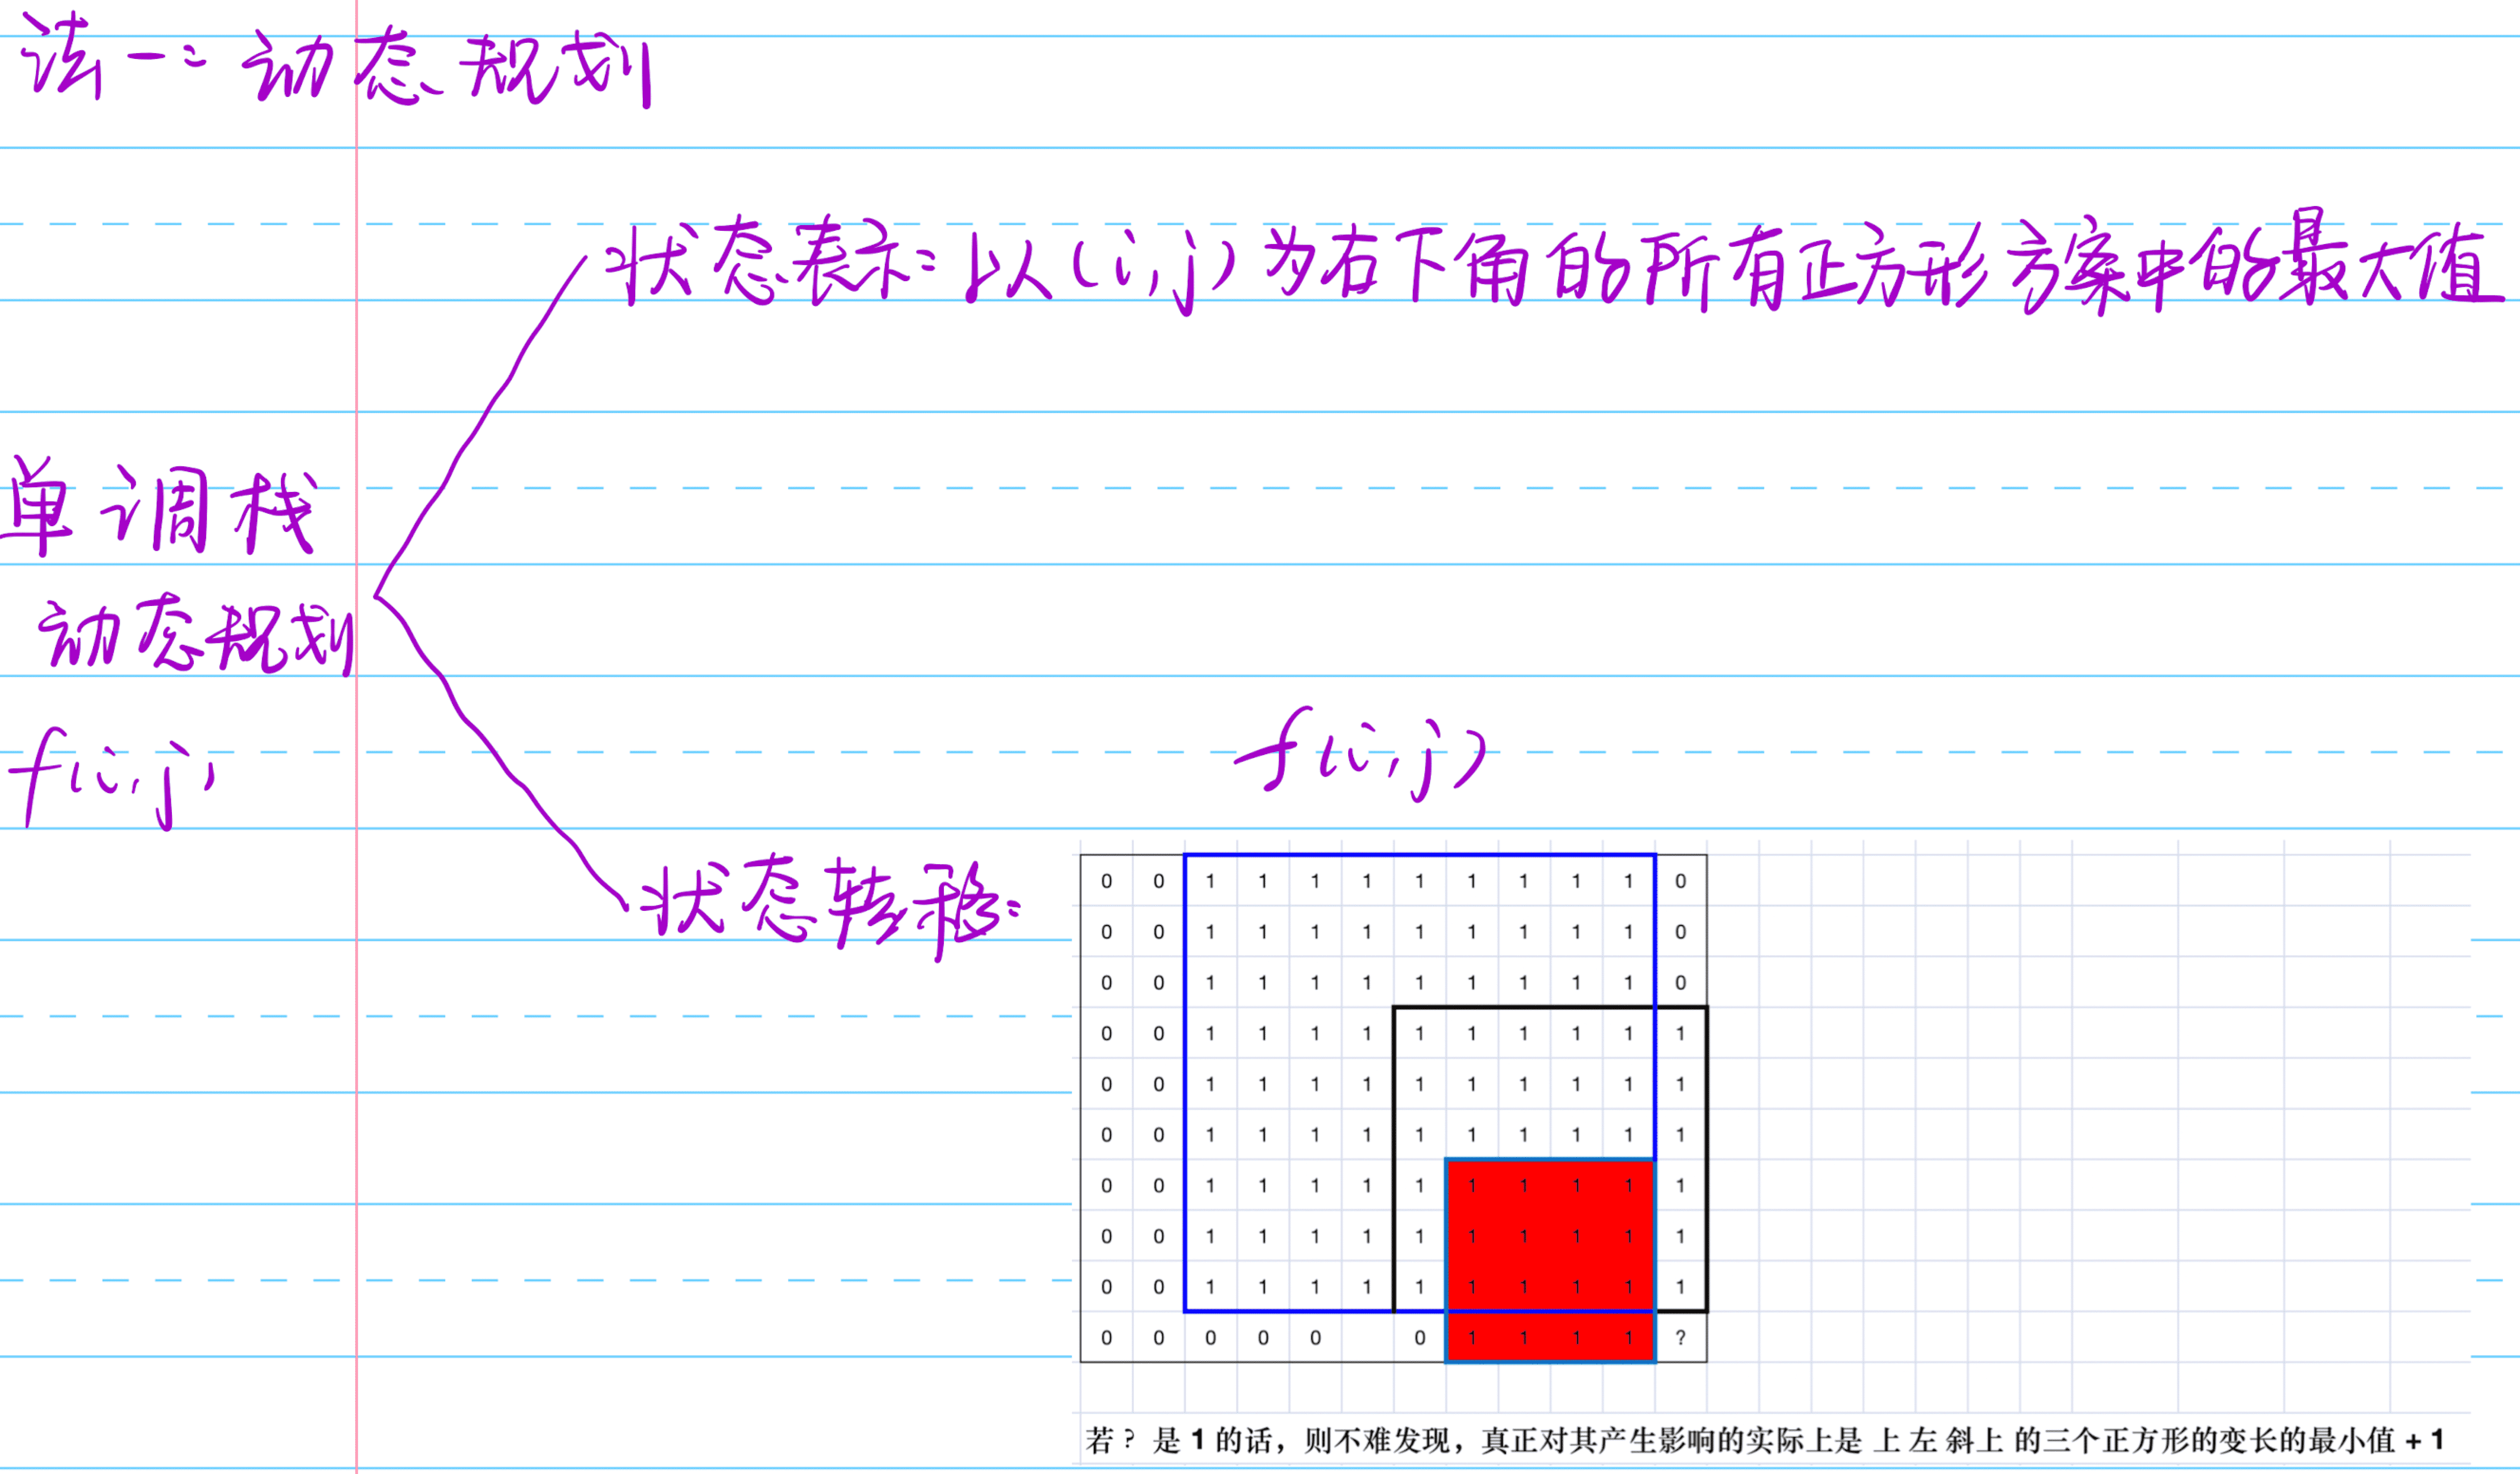 法一：动态规划
状态表示：以(i,j)为右下角的所有正方形方案中的最大值
单调栈
动态规划
f(i,j)
f(i,j)
状态转移：
0 0 1 1 1 1 1 1 1 1 1 0
0 0 1 1 1 1 1 1 1 1 1 0
0 0 1 1 1 1 1 1 1 1 1 0
0 0 1 1 1 1 1 1 1 1 1 1
0 0 1 1 1 1 1 1 1 1 1 1
0 0 1 1 1 1 1 1 1 1 1 1
0 0 1 1 1 1 1 1 1 1 1 1
0 0 1 1 1 1 1 1 1 1 1 1
0 0 1 1 1 1 1 1 1 1 1 1
0 0 0 0 0 0 1 1 1 1 ?
若？是 1 的话，则不难发现，真正对其产生影响的实际上是 上 左 斜上 的三个正方形的变长的最小值 + 1